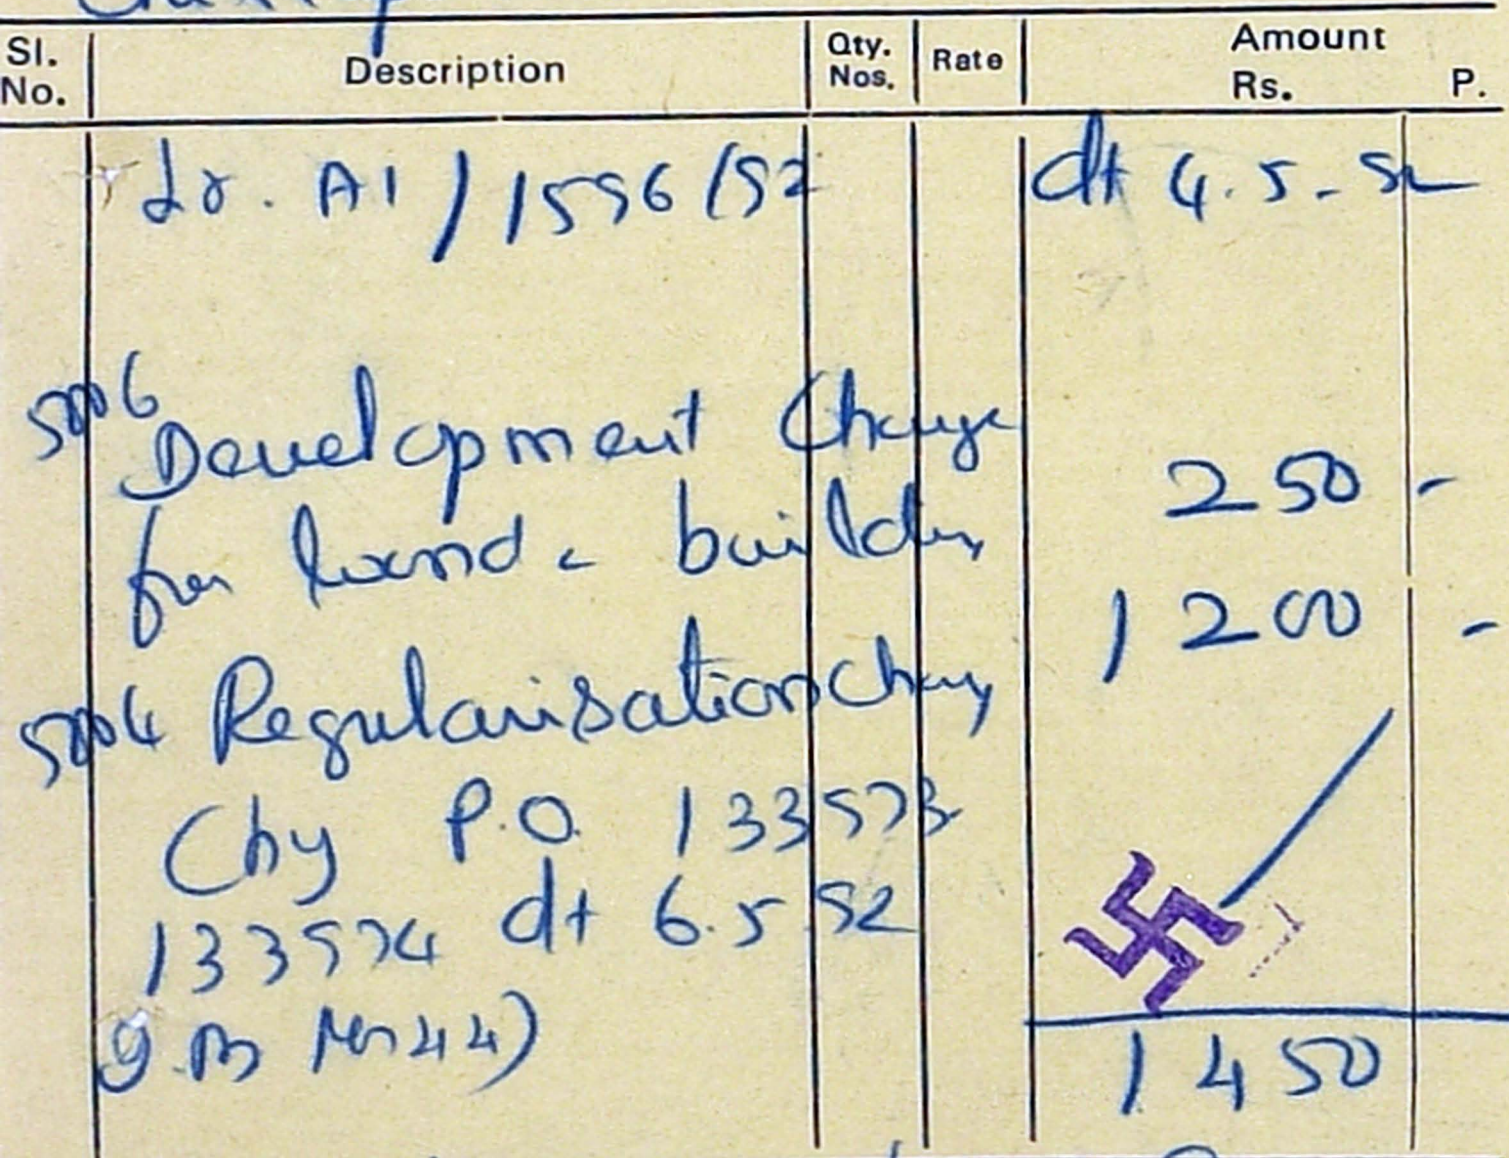 Sl. No. Description Qty. Nos. Rate Amount Rs. P.
Lr. A1/1596/92 dt 4.5.92
5006
Development Charge
for land & building 250 -
1200 -
5004 Regularisation Charge
P.O. 133573
133574 dt 6.5.92
44)
1450